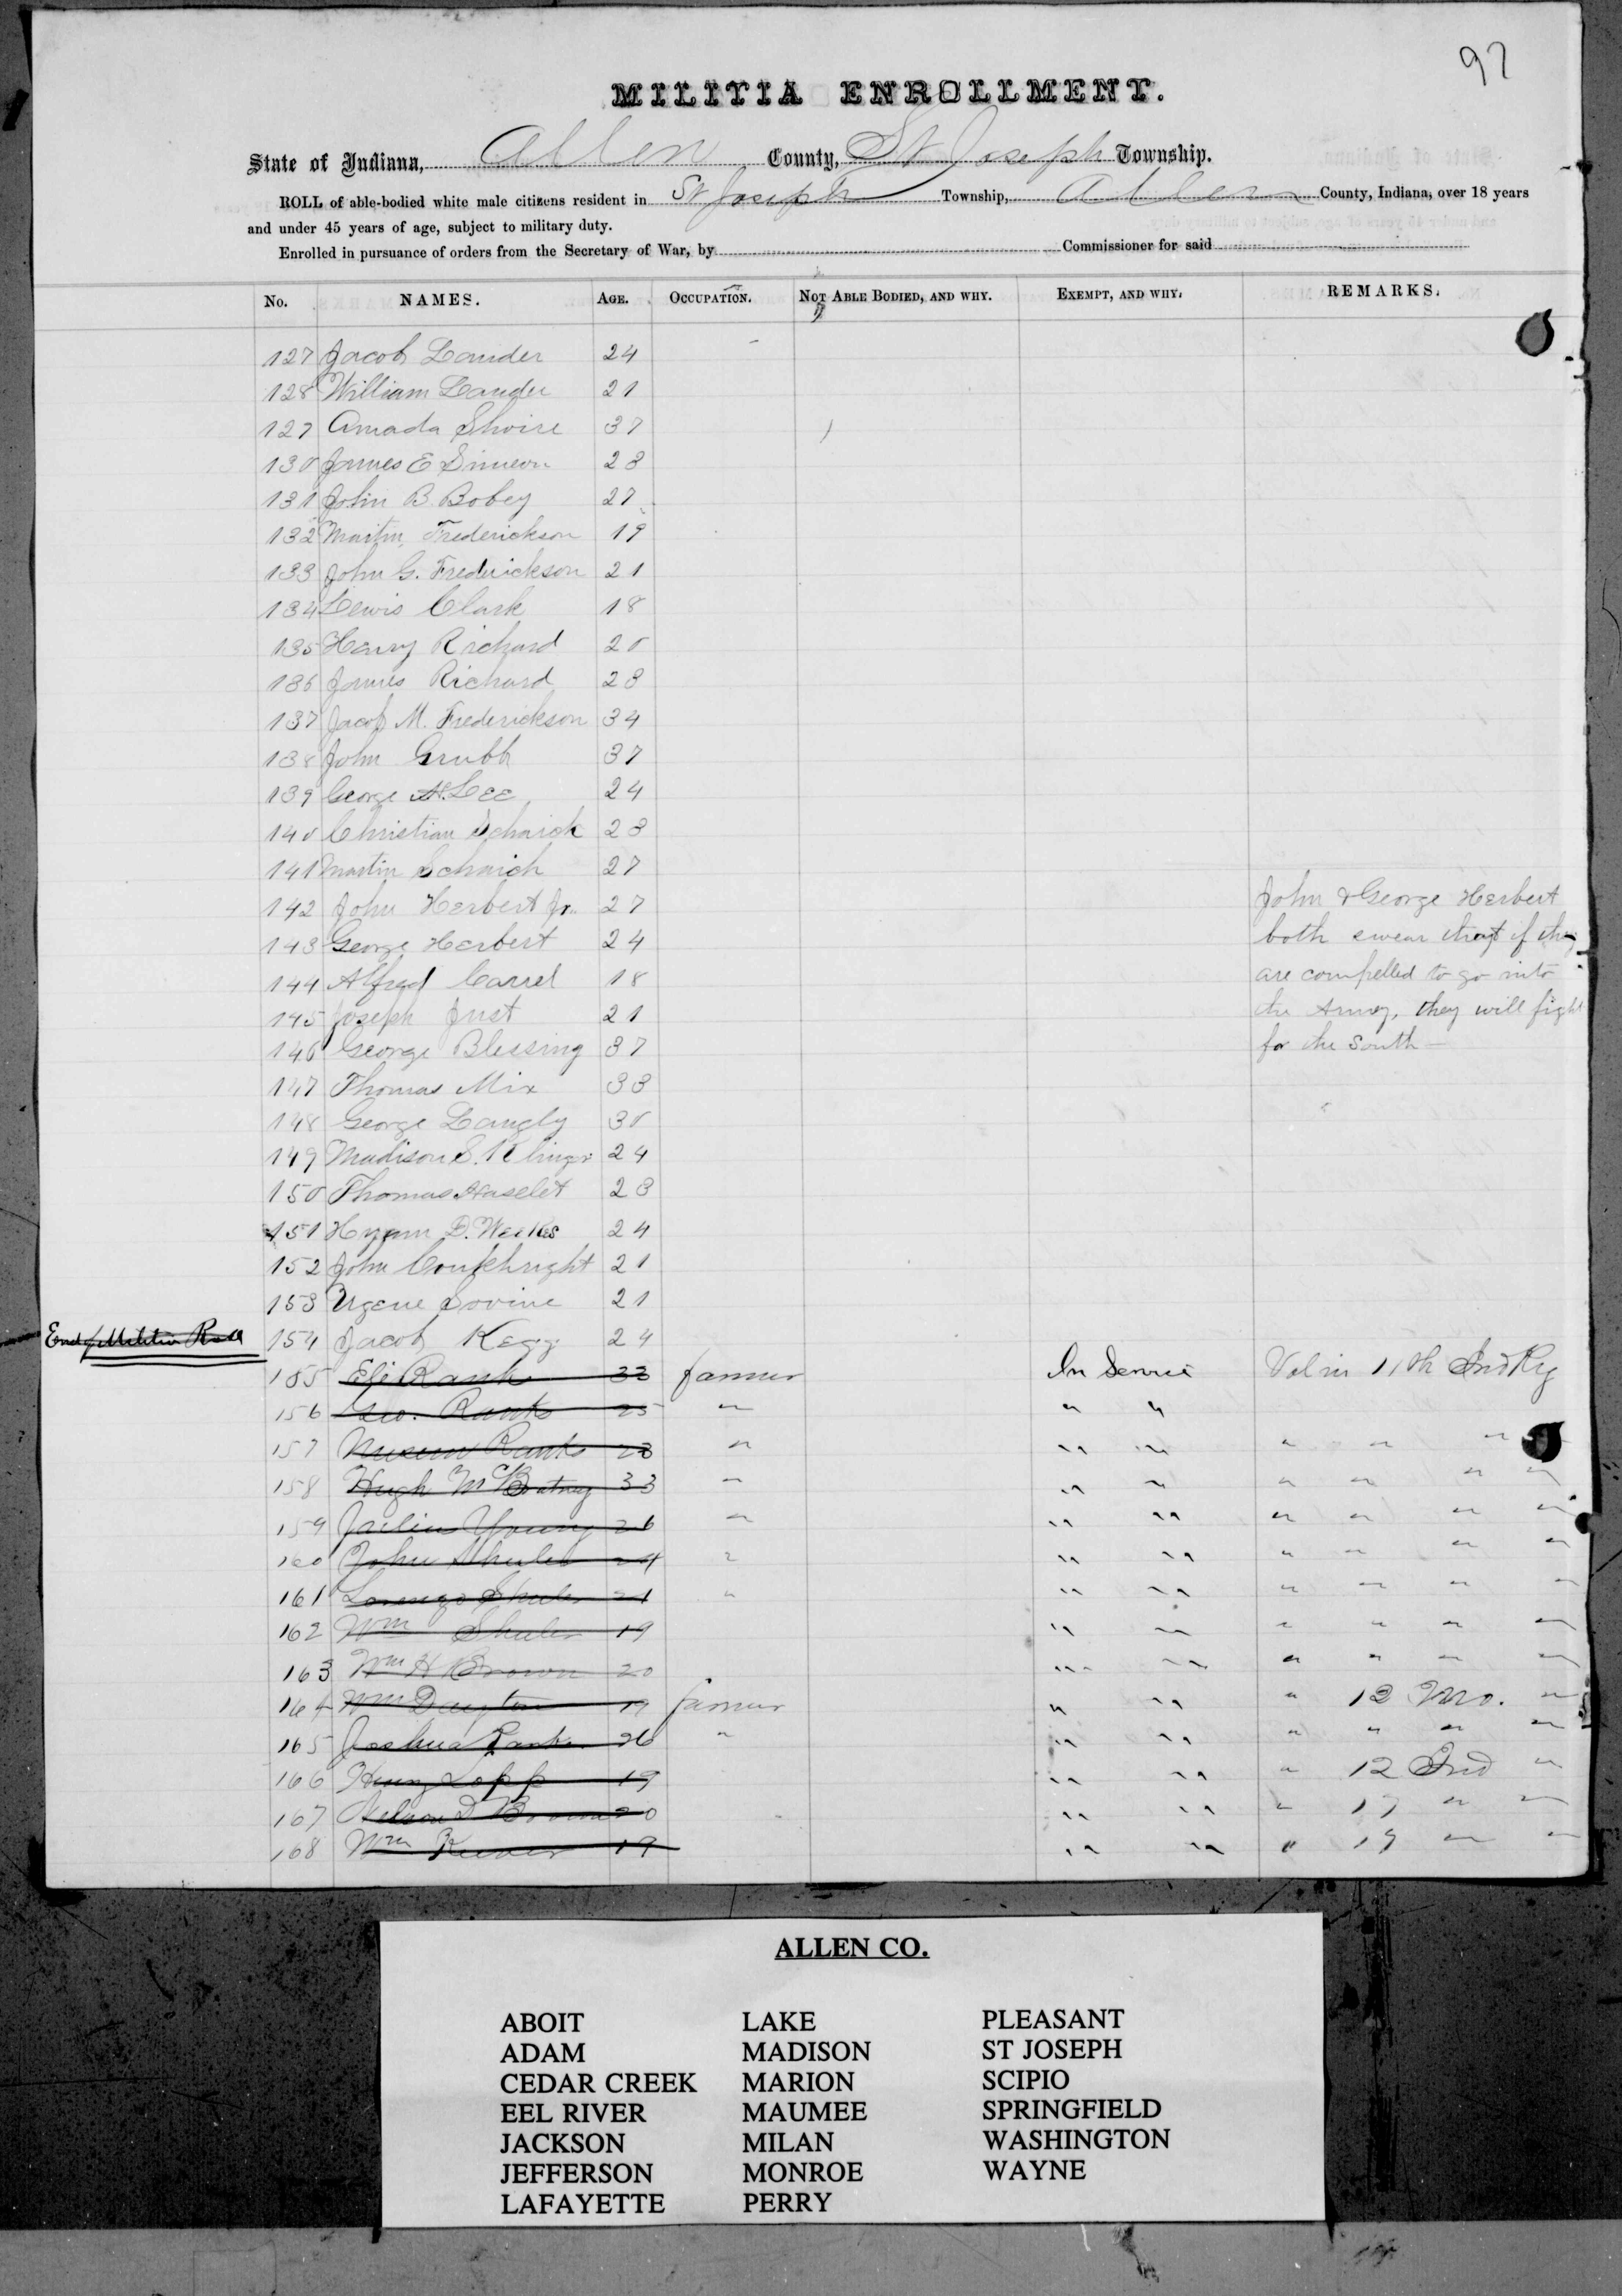 97
MILITIA ENROLLMENT.
State of Indiana, Allen County, St Joseph Township.
ROLL of able-bodied white male citizens resident in St Joseph Township, Allen County, Indiana, over 18 years
and under 45 years of age, subject to military duty.
Enrolled in pursuance of orders from the Secretary of War, by Commissioner for said
No. NAMES. AGE. OCCUPATION. NOT ABLE BODIED, AND WHY. EXEMPT, AND WHY. REMARKS.
127 Jacob Lander 24
128 William Lander 21
127 Amada Shoire 37
130 James E Simeon 23
131 John B. Bobey 27
132 Martin Frederickson 19
133 John G. Frederickson 21
134 Lewis Clark 18
135 Henry Richard 20
136 James Richard 23
137 Jacob M. Frederickson 34
138 John Grubb 37
139 George A. Lee 24
140 Christian Schaich 23
141 Martin Schaich 27
142 John Herbert Jr. 27 John & George Herbert
143 George Herbert 24 both swear that if they
144 Alfred Carrel 18 are compelled to go into
145 Joseph Just 21 the Army, they will fight
146 George Blessing 37 for the South —
147 Thomas Mix 33
148 George Langly 30
149 Madison S. Klinger 24
150 Thomas Haselet 23
151 Hyram D. Weekes 24
152 John 21
153 Ugene Lovine 21
End of Militia Roll 154 Jacob Kegg 24
155 Eli Rank 33 farmer In Service Vol in 11th Ind Reg
156 Geo. Ranks 25 " " " 
157 Ranks 23 " " " " " "
158 Hugh McBratney 33 " " " " " " "
159 Young 26 " " " " " " "
160 John Shuler 24 " " " " " " "
161 Lorenzo Shuler 21 " " " " " " "
162 Wm Shuler 19 " " " " " "
163 Wm H Brown 20 " " " " " "
164 Wm Dayton 19 farmer " " " 12 Mo. "
165 Joshua Ranks 26 " " " " " " "
166 Henry Lopp 19 " " " 12 Ind "
167 Nelson D Brown 20 " " " 17 " "
168 Wm 19 " " " 19 " "
ALLEN CO.
ABOIT LAKE PLEASANT
ADAM MADISON ST JOSEPH
CEDAR CREEK MARION SCIPIO
EEL RIVER MAUMEE SPRINGFIELD
JACKSON MILAN WASHINGTON
JEFFERSON MONROE WAYNE
LAFAYETTE PERRY